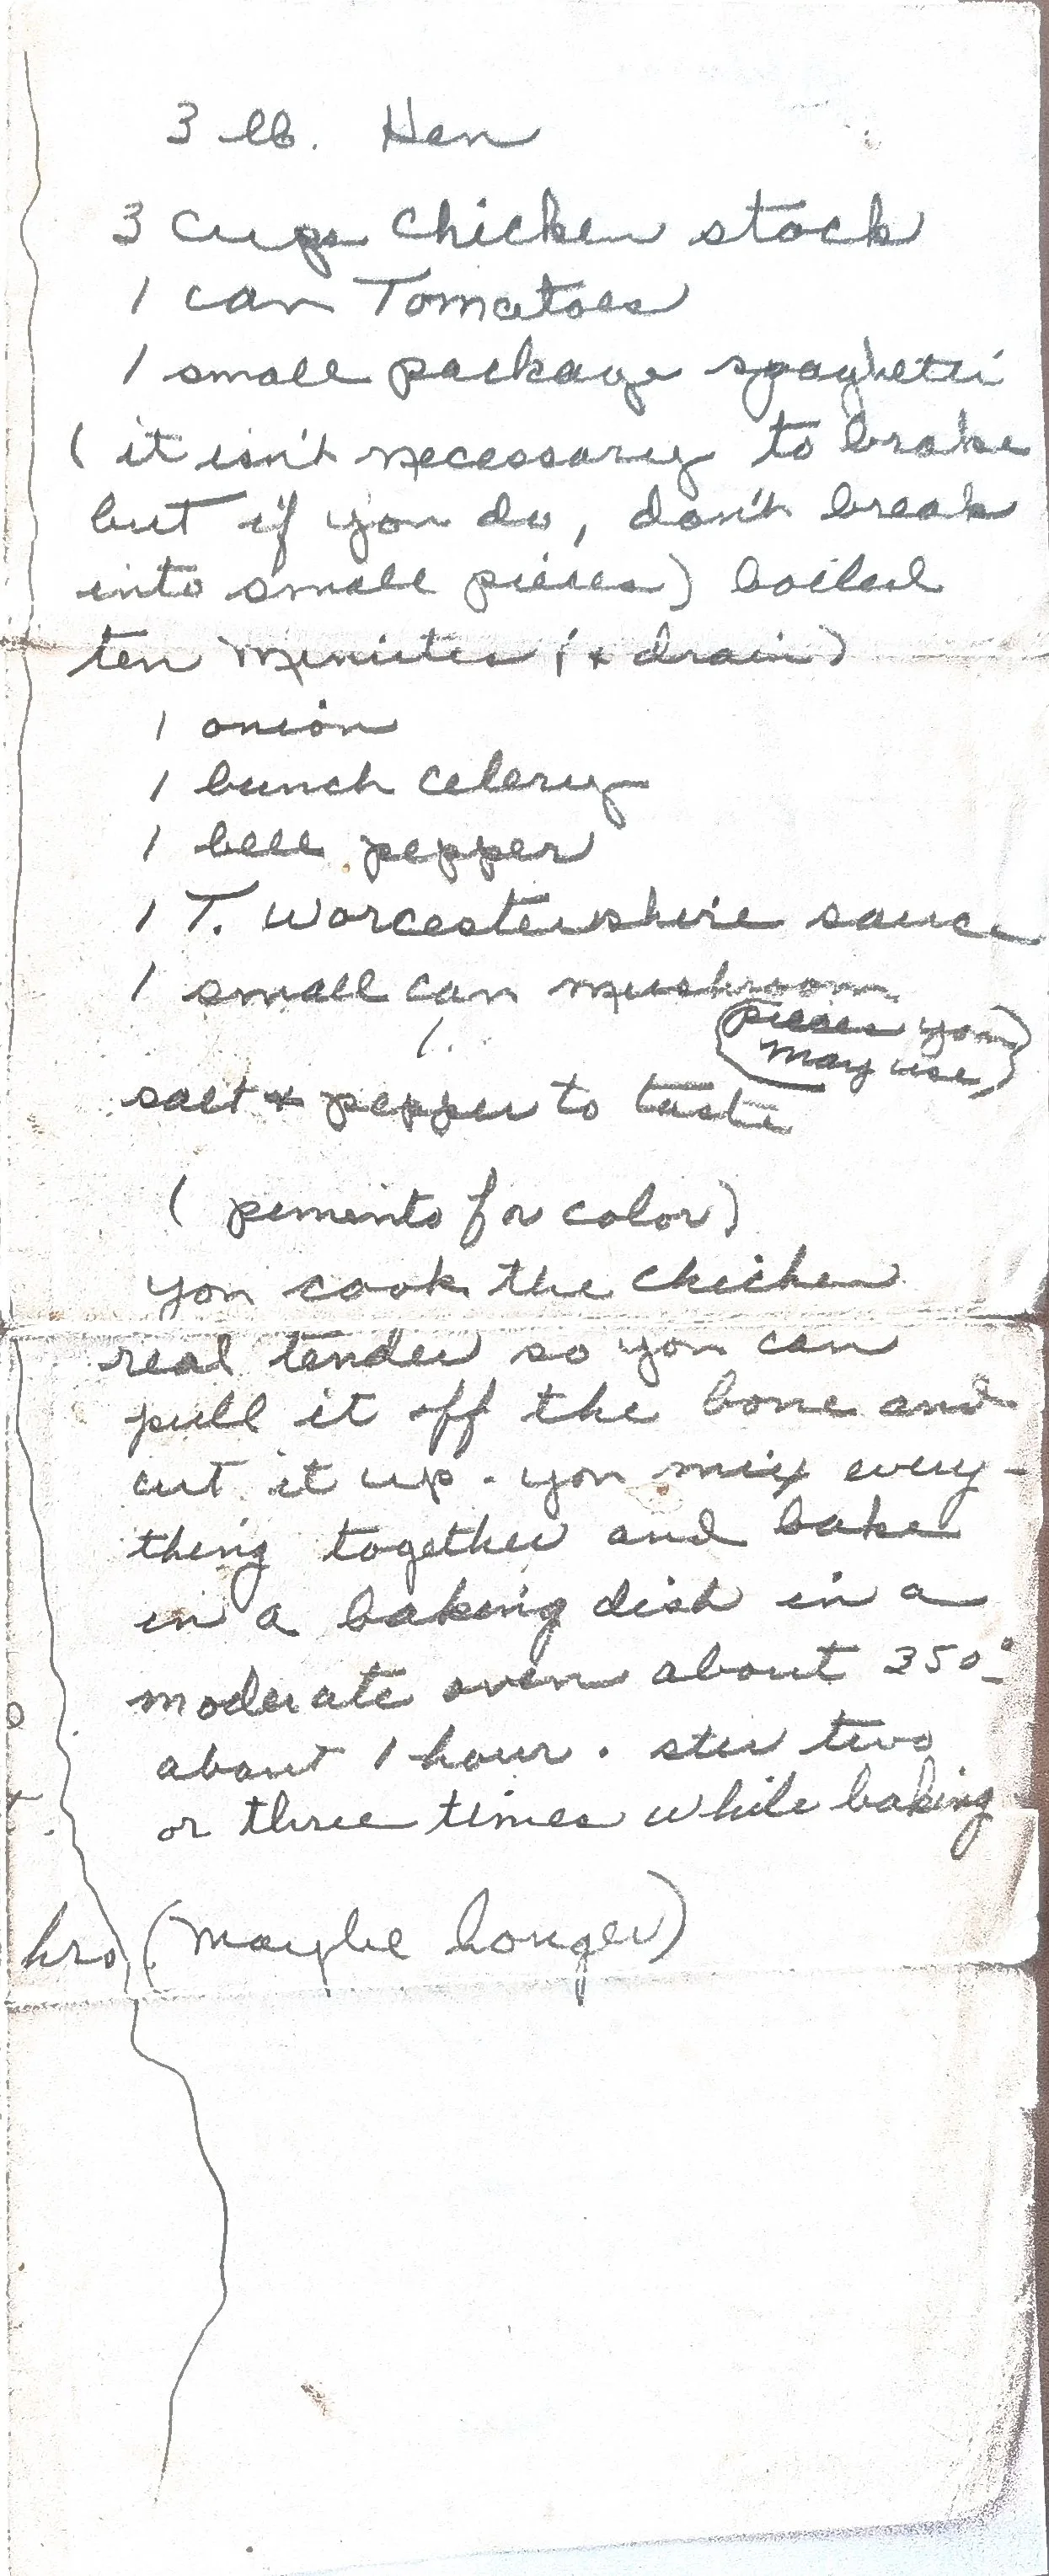 3 lb. Hen
3 cups chicken stock
1 can Tomatoes
1 small package spaghetti
( it isn't necessary to brake
but if you do, don't break
into small pieces) boiled
ten minutes (& drain)
1 onion
1 bunch celery
1 bell pepper
1 T. Worcestershire sauce
1 small can mushroom
(pieces you
may use)
salt & pepper to taste
( pimento for color)
you cook the chicken
real tender so you can
pull it off the bone and
cut it up. you mix every-
thing together and bake
in a baking dish in a
moderate oven about 350°
about 1 hour. stir two
or three times while baking
hrs (maybe longer)